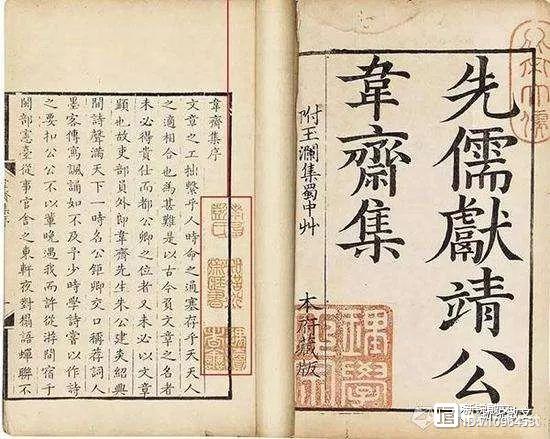 先儒獻靖公
韋齋集
附玉瀾集蜀中艸
本府藏版
韋齋集序
文章之工拙繫乎人時命之通塞存乎天天人
之適相合也為甚難是以古今負文章之名者
未必得貴仕而都公卿之位者又未必以文章
顯也故吏部員外郎韋齋先生朱公建炎紹興
間詩聲滿天下一時名公鉅卿交口稱薦詞人
墨客傳寫諷誦如不及予少時學詩嘗以作詩
之要扣公公不以輩晚遇我而許從游間宿于
閩部憲臺從事官舍之東軒夜對榻語蟬聯不